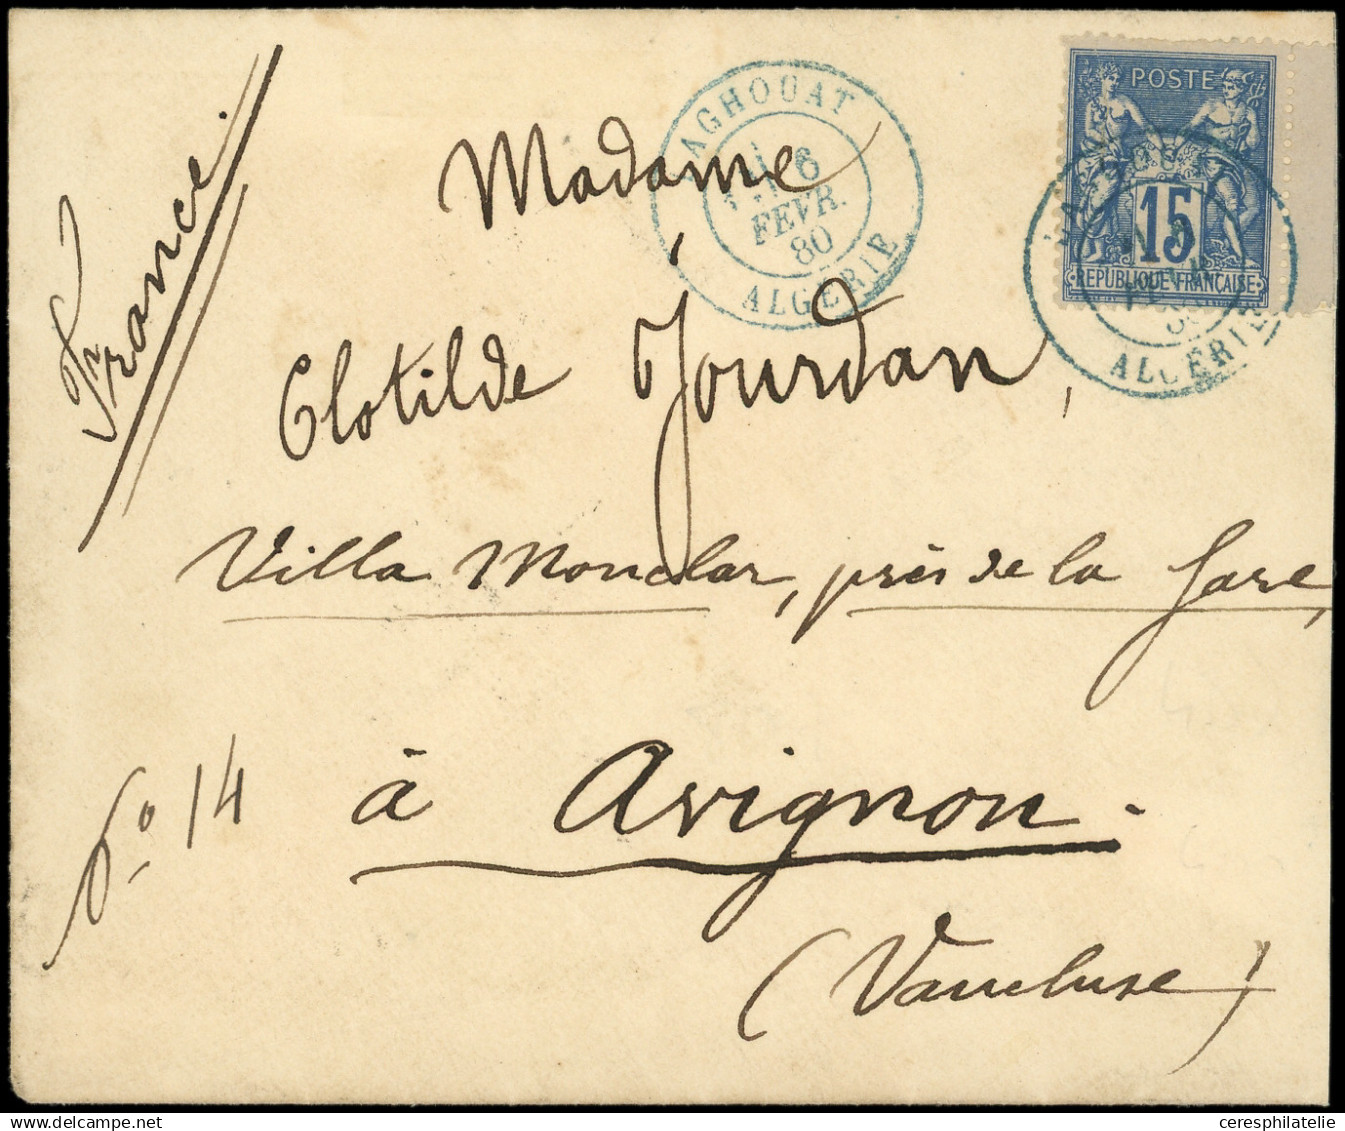 France.
LAGHOUAT
6
FEVR.
80
ALGÉRIE
POSTE
15
REPUBLIQUE FRANÇAISE
ALGÉRIE
Madame
Clotilde Jourdan,
Villa Monclar, près de la Gare,
à Avignon.
(Vaucluse)
No 14
ceresphilatelie